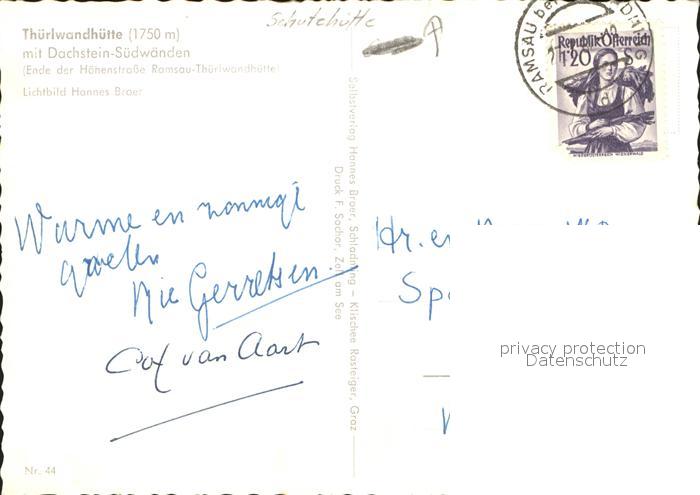 Schutzhütte
Thürlwandhütte (1750 m)
mit Dachstein-Südwänden
(Ende der Höhenstraße Ramsau-Thürlwandhütte)
Lichtbild Hannes Broer
RAMSAU
Republik Österreich
1·20 S
NIEDERÖSTERREICH WIENERWALD
Warme en zonnige
groeten
Mie Gerretsen.
Cox van Aart
Selbstverlag Hannes Broer, Schladming – Klischee Rosteiger, Graz
Druck F. Sochor, Zell am See
Hr. en
privacy protection
Datenschutz
Nr. 44